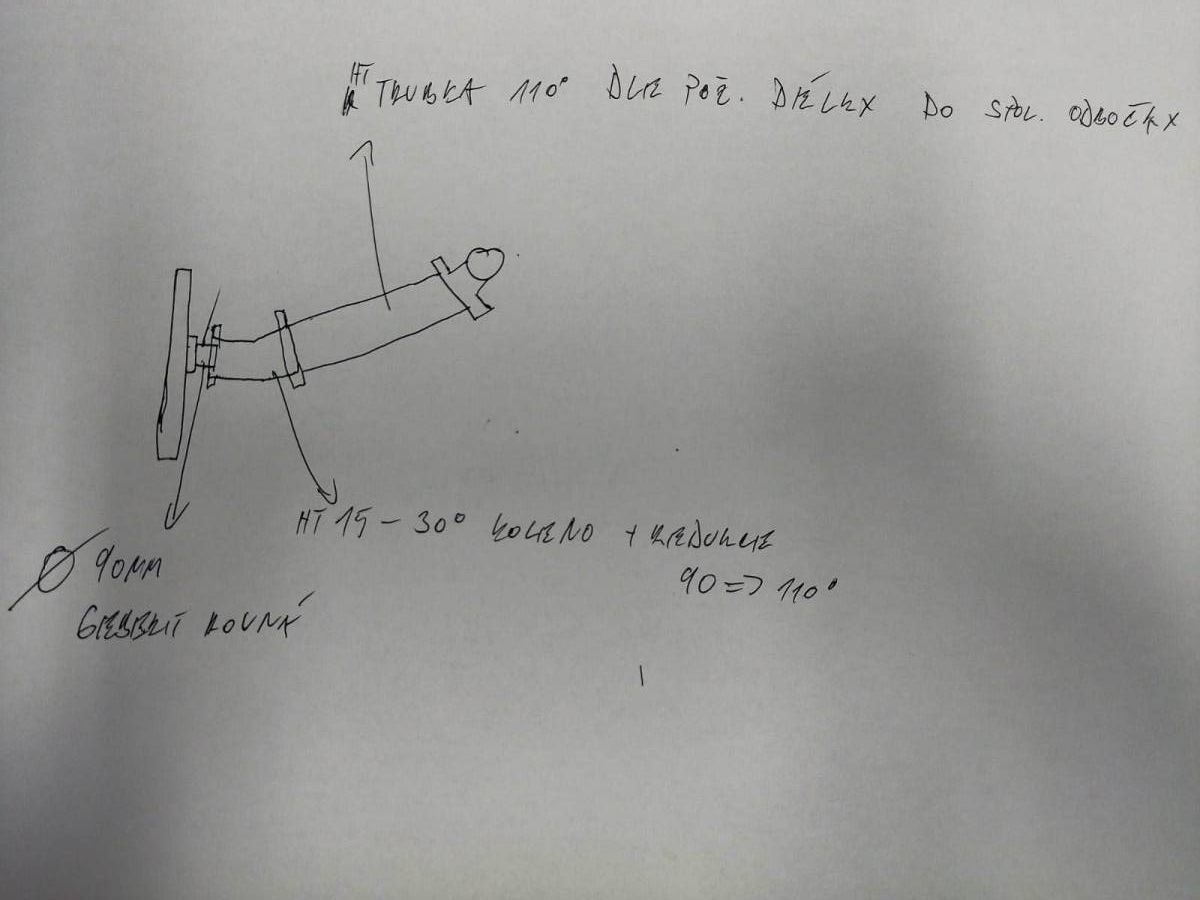 HT TRUBKA 110° DLE POŽ. DÉLKY DO SPOL. ODBOČKY
HT 15 - 30° KOLENO + REDUKCE
90 => 110°
Ø 90MM
GEBERIT ROVNÁ